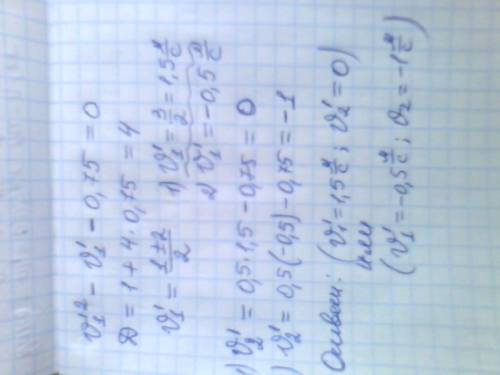 ϑ₁'² − ϑ₁' − 0,75 = 0
D = 1 + 4·0,75 = 4
ϑ₁' = (1±2)/2   1) ϑ₁' = 3/2 = 1,5 м/с
2) ϑ₁' = −0,5 м/с
1) ϑ₂' = 0,5·1,5 − 0,75 = 0
) ϑ₂' = 0,5(−0,5) − 0,75 = −1
Ответ: (ϑ₁' = 1,5 м/с ; ϑ₂' = 0)
или
(ϑ₁' = −0,5 м/с ; ϑ₂ = −1 м/с)